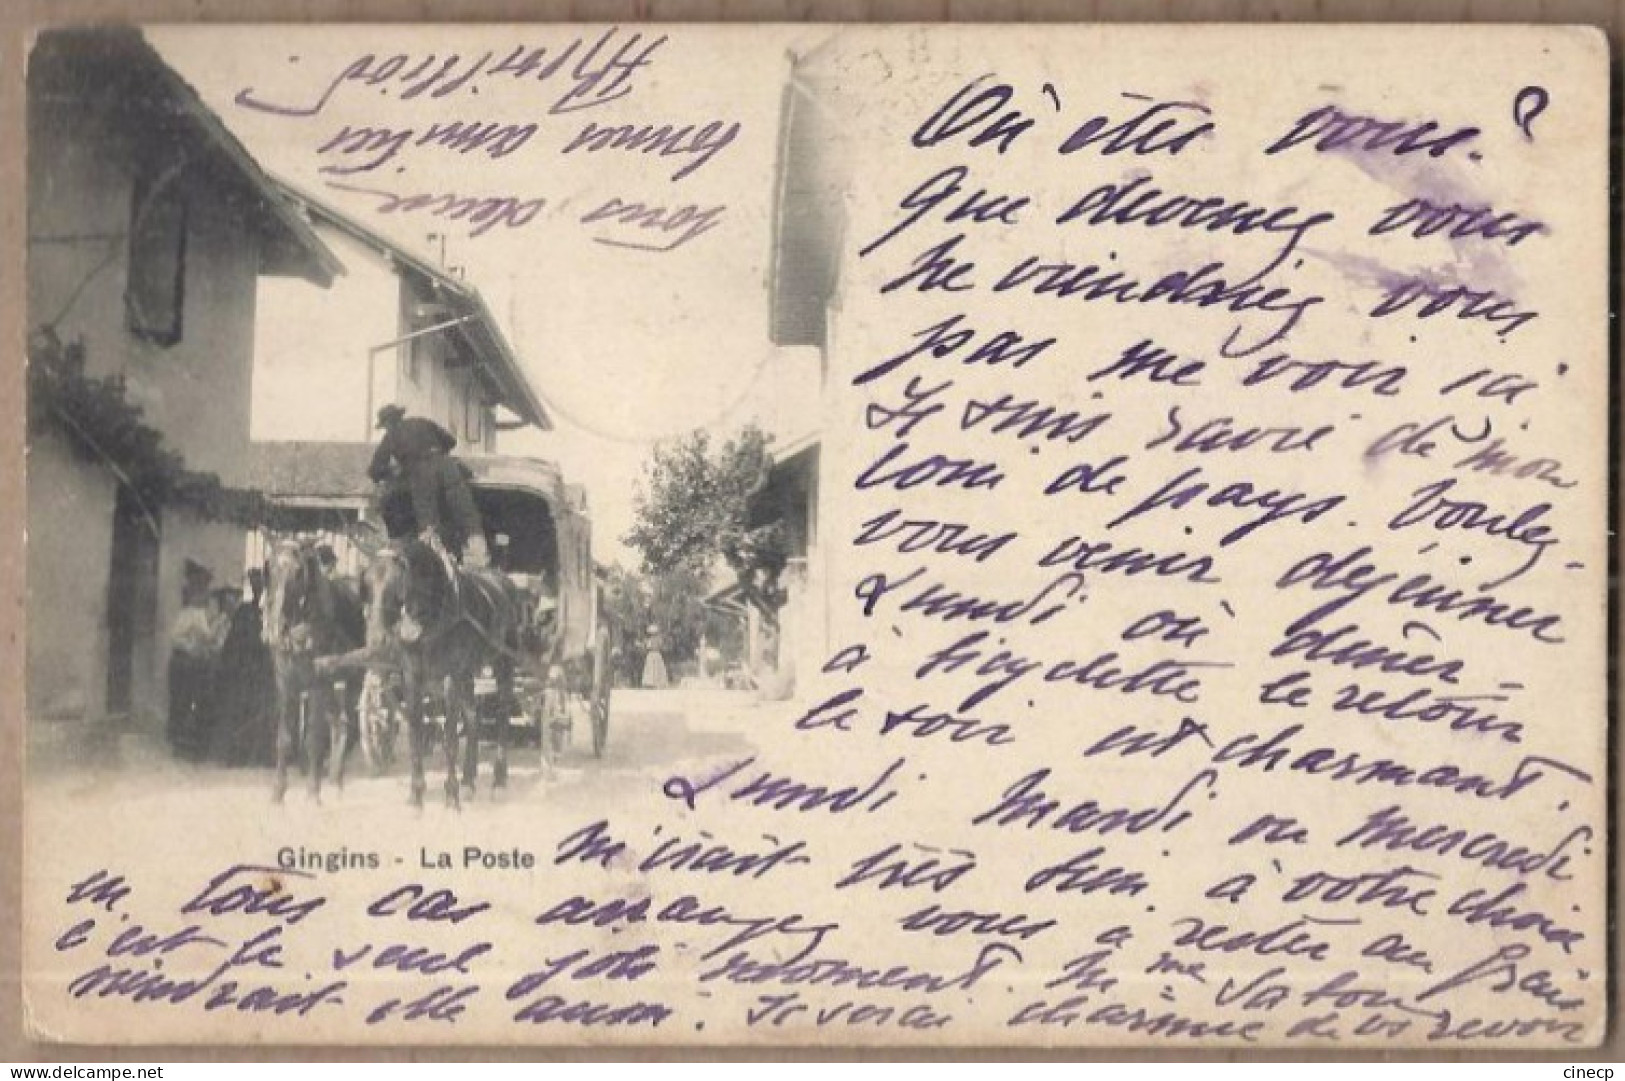 Où êtes vous ?
Que devenez vous
ne viendriez vous
pas me voir ici
Je suis ravie de mon
coin de pays. Voulez-
vous venir déjeuner
Lundi ou dîner -
à bicyclette le retour
le soir est charmant.
Lundi mardi ou mercredi
Gingins - La Poste
m'irait très bien. à votre choix
en tous cas arrangez vous à rester au frais
c'est le seul joli moment. Mme
viendrait elle aussi. Je serai charmée de vs revoir
tous deux
bonnes amitiés
cinecp